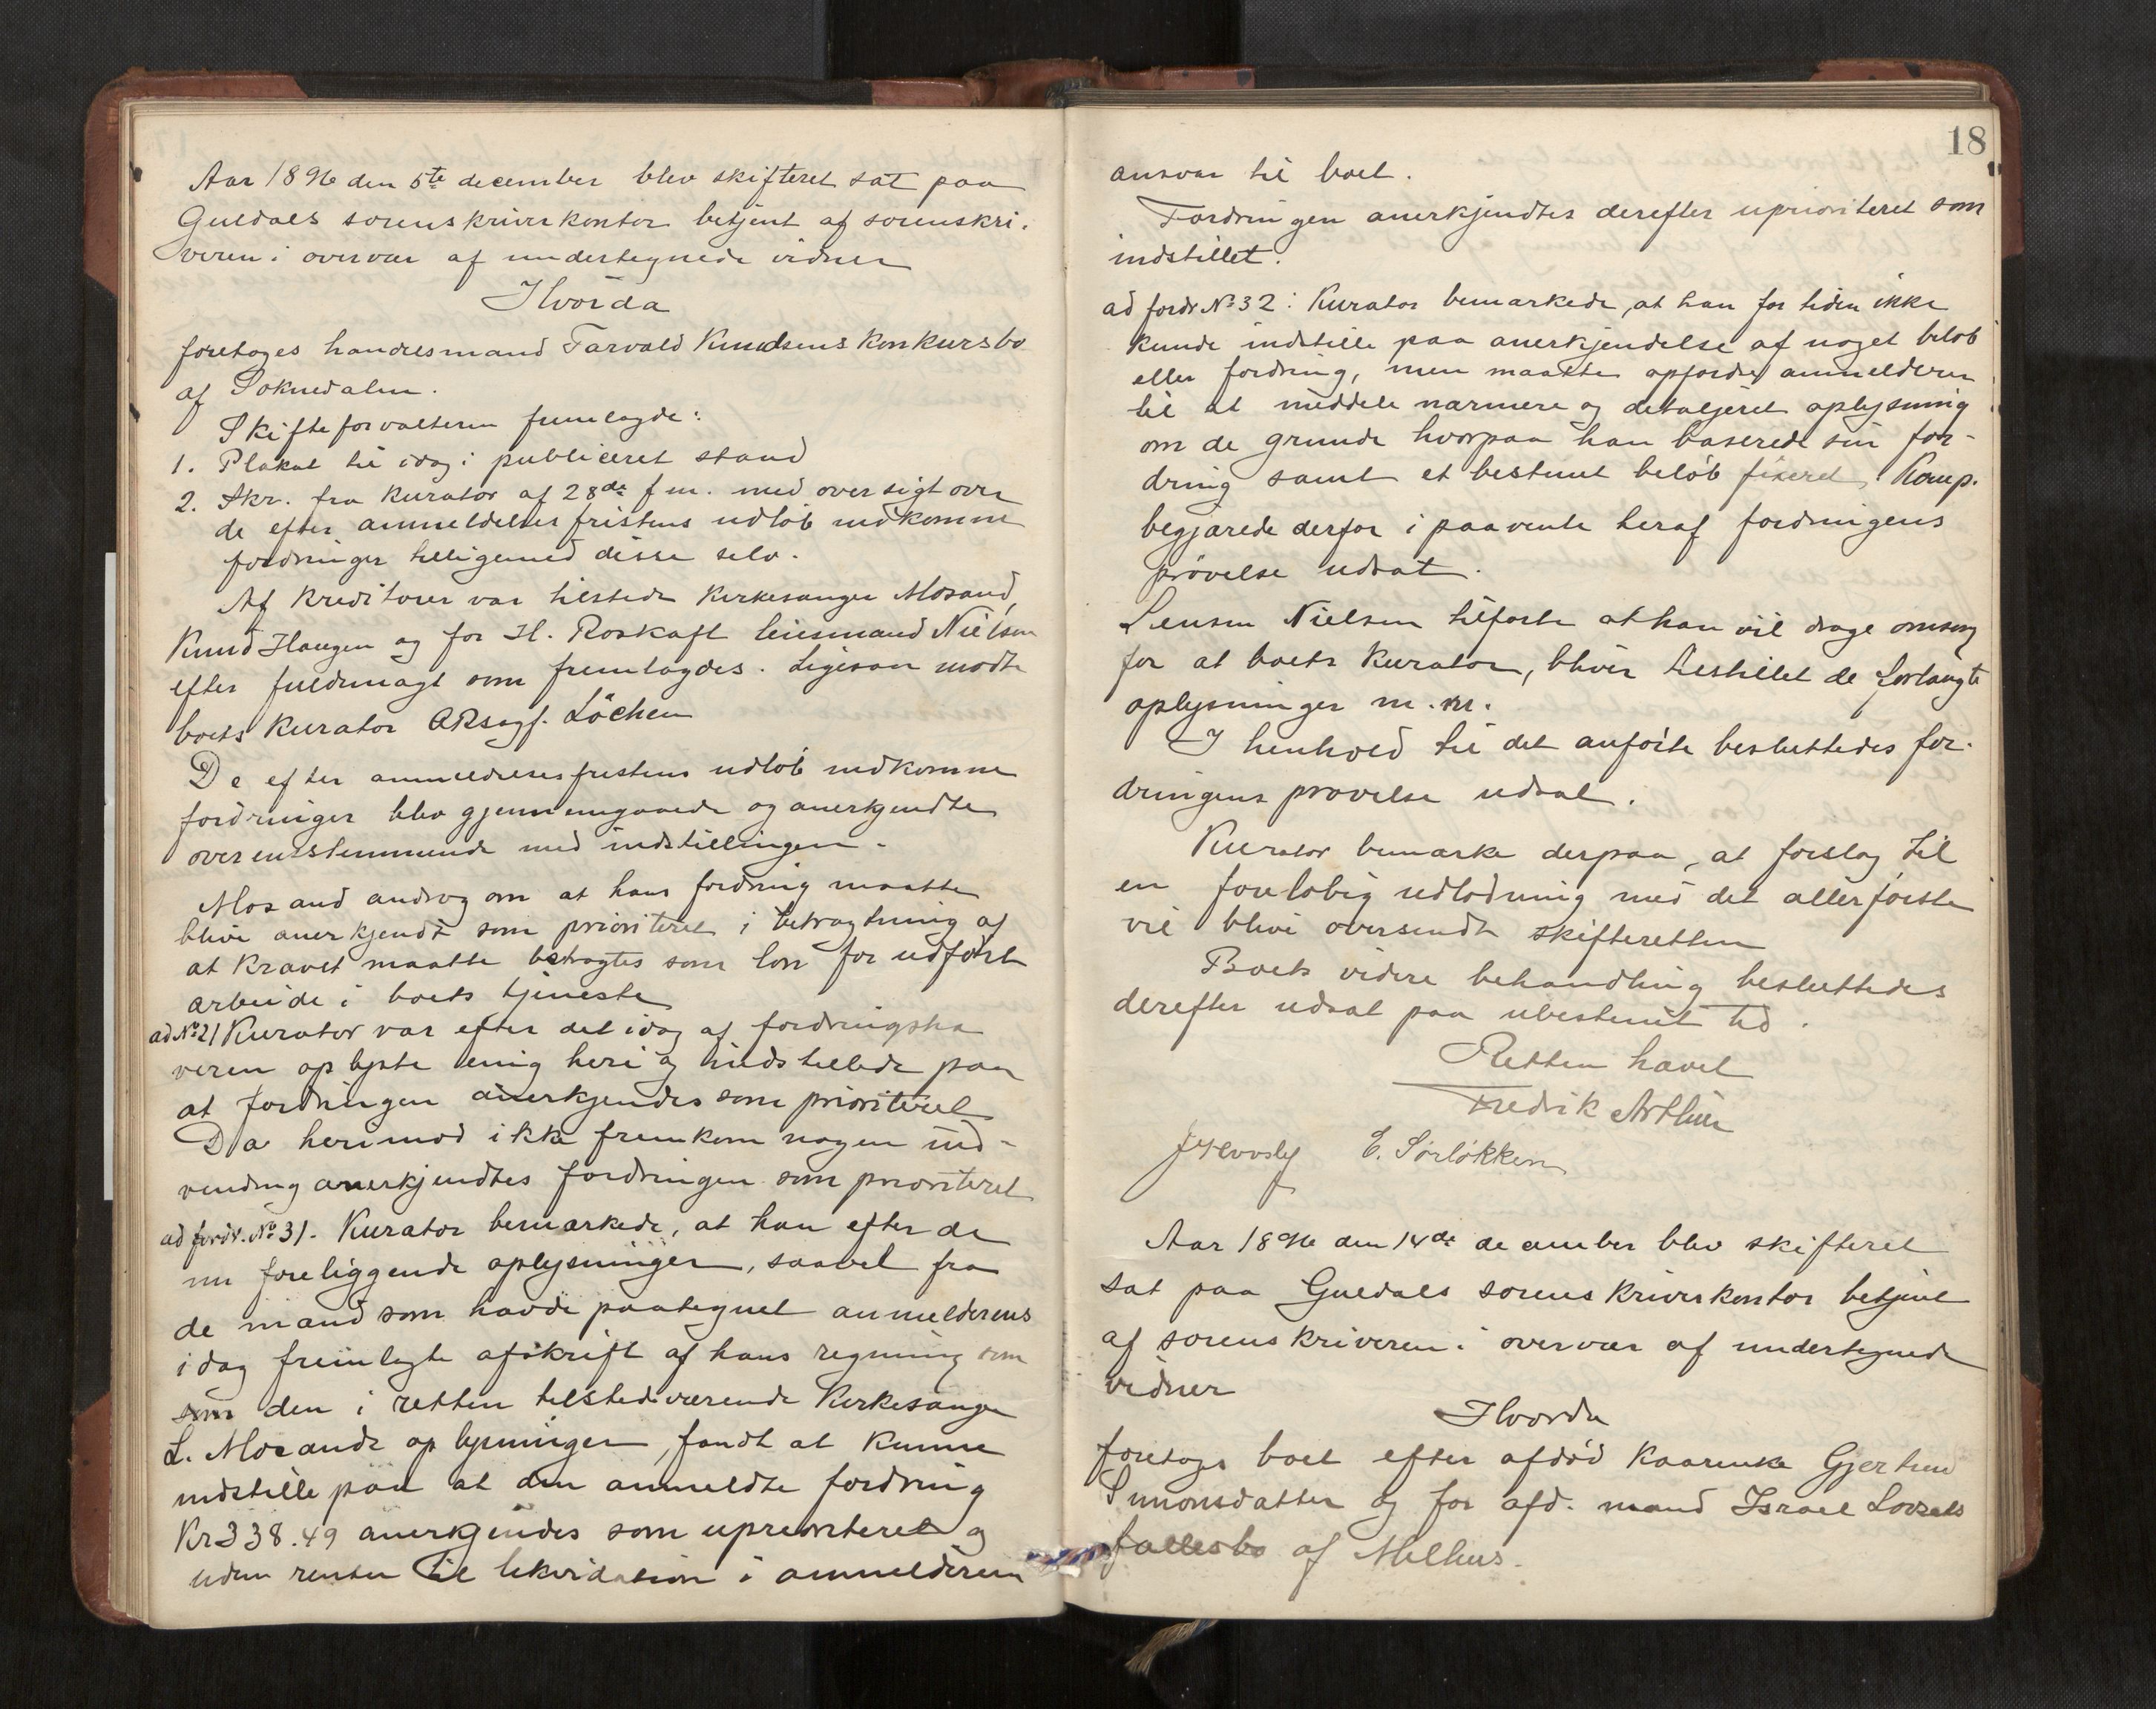 Aar 1896 den 5te december blev skifteret sat paa
Guldals sorenskriverkontor betjent af sorenskri-
veren i overvær af undertegnede vidner
Hvorda
foretoges handelsmand Tarvald Knudsens konkursbo
af Soknedalen.
Skifteforvalteren fremlagde:
1. Plakat til idag i publiceret stand
2. Skr. fra kurator af 28de f m. med oversigt over
de efter anmeldelsesfristens udløb indkomne
fordringer tilligemed disse selv.
Af kreditorer var tilstede kirkesanger Mosand,
Knud Haugen og for H. Roskaft lensmand Nielsen
efter fuldmagt som fremlagdes. Ligesaa mødte
boets kurator ORsagf. Löchen
De efter anmeldelsesfristens udløb indkomne
fordringer blev gjennemgaaede og anerkjendte
overensstemmende med indstillingen.
Mosand androg om at hans fordring maatte
blive anerkjendt som prioriteret i betragtning af
at kravet maatte betragtes som løn for udført
arbeide i boets tjeneste
ad No 21 Kurator var efter det idag af fordringsha
veren oplyste enig heri og indstillede paa
at fordringen anerkjendes som prioriteret
Da herimod ikke fremkom nogen ind-
vending anerkjendtes fordringen som prioriteret
ad fordr. No 31. Kurator bemærkede, at han efter de
nu foreliggende oplysninger, saavel fra
de mænd som havde paategnet anmelderens
idag fremlagte afskrift af hans regning som
den i retten tilstedeværende kirkesanger
L. Mosands oplysninger, fandt at kunne
indstille paa at den anmeldte fordring
Kr 338.49 anerkjendes som uprioriteret og
uden renter til likvidation i anmelderens
18
ansvar til boet.
Fordringen anerkjendtes derefter uprioriteret som
indstillet.
ad fordr No 32: Kurator bemærkede, at han for tiden ikke
kunde indstille paa anerkjendelse af noget beløb
eller fordring, men maatte opfordre anmelderen
til at meddele nærmere og detaljeret oplysning
om de grunde hvorpaa han baserede sin for-
dring samt et bestemt beløb fixeret, Komp.
begjærede derfor i paavente heraf fordringens
prøvelse udsat.
Lensm Nielsen tilførte at han vil drage omsorg
for at boets kurator, bliver tilstillet de forlangte
oplysninger m.m.
I henhold til det anførte besluttedes for-
dringens prøvelse udsat.
Kurator bemærke derpaa, at forslag til
en foreløbig udlodning med det allerførste
vil blive oversendt skifteretten
Boets videre behandling besluttedes
derefter udsat paa ubestemt tid.
Retten hævet
Fredrik Arthur
E. Sørløkken
Aar 1896 den 14de december blev skifteret
sat paa Guldals sorenskriverkontor betjent
af sorenskriveren i overvær af undertegnede
vidner
Hvorda
foretoges boet efter afdød Kaarenke Gjertrud
Simonsdatter og for afd. mand Israel
fællesbo af Melhus.